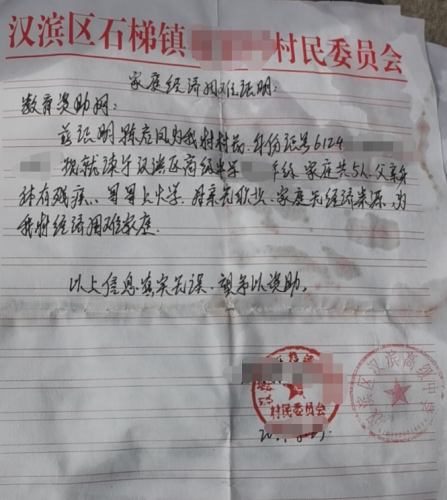 汉滨区石梯镇 村民委员会
家庭经济困难证明:
教育资助网:
兹证明 为我村村民,身份证号6124
现就读于汉滨区高级中学 年级、家庭共5人、父亲身
体有残疾、哥哥上大学、母亲无职业、家庭无经济来源、为
我村经济困难家庭.
以上信息真实无误、望予以资助.
村民委员会
汉滨区汉滨高级中学